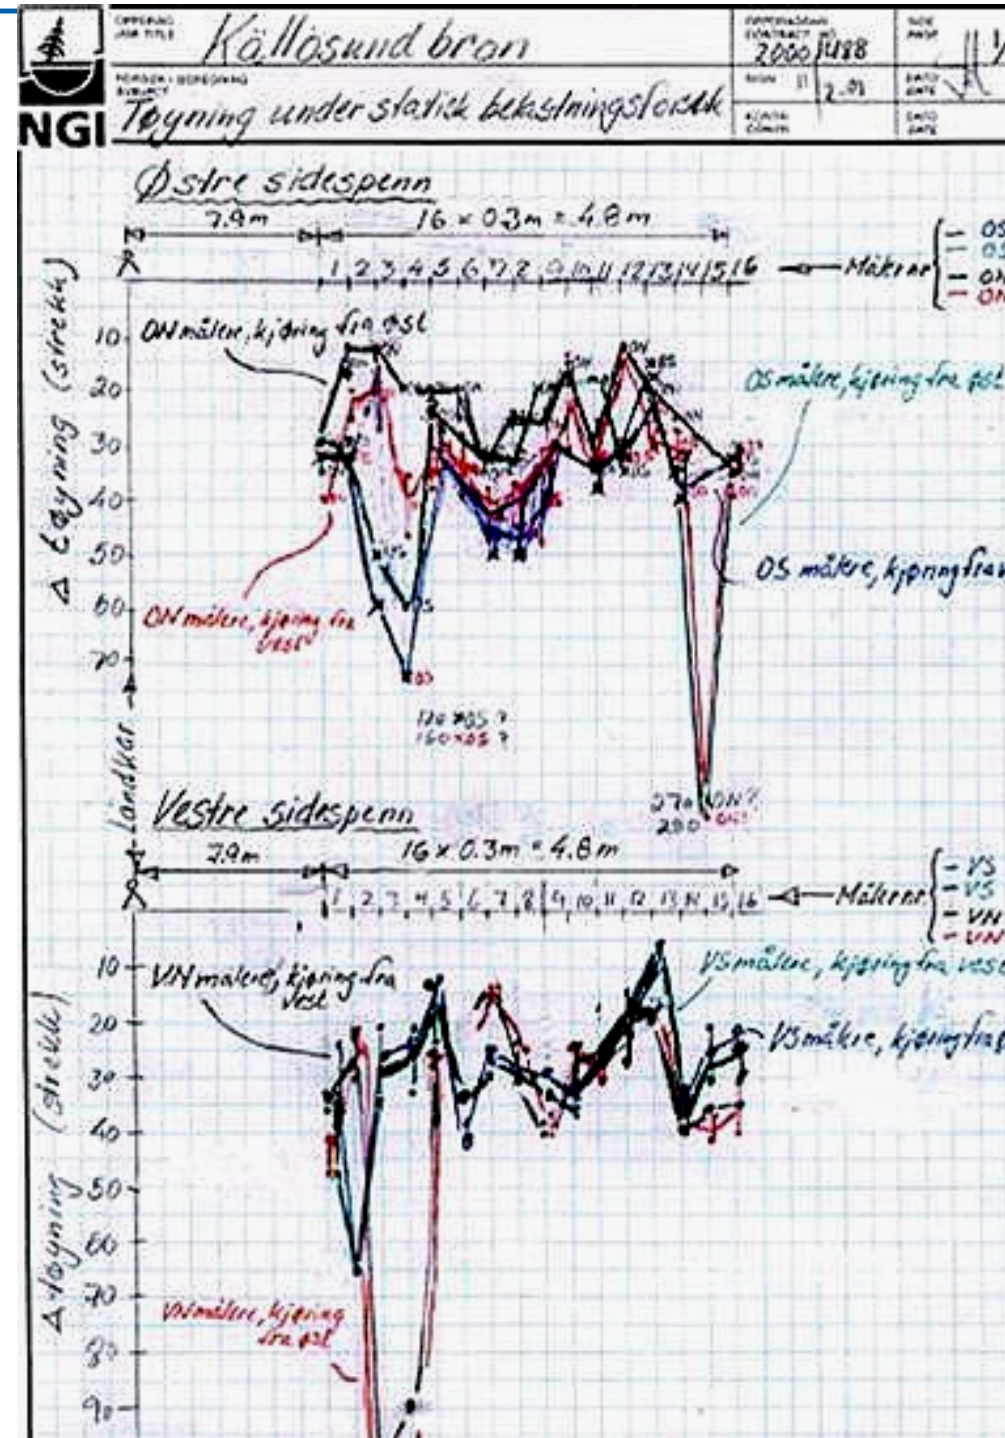 OPPDRAG
JOB TITLE
Källösund bron
2000 1488
SIDE
PAGE
NGI
Tøyning under statisk belastningsforsøk
SIGN
DATO
DATE
KONTR
DATO
DATE
Østre sidespenn
7.9m
16 x 0.3m = 4.8m
1 2 3 4 5 6 7 8 9 10 11 12 13 14 15 16
Måler nr.
OS
OS
ON
ON
Δ tøyning (strekk)
10
20
30
40
50
60
70
ON målere, kjøring fra øst
OS målere, kjøring fra øst
OS målere, kjøring fra v
ON målere, kjøring fra
vest
120 x OS ?
160 x OS ?
270 ON ?
280
Landkar
Vestre sidespenn
7.9m
16 x 0.3m = 4.8m
1 2 3 4 5 6 7 8 9 10 11 12 13 14 15 16
Måler nr.
VS
VS
VN
VN
Δ tøyning (strekk)
10
20
30
40
50
60
70
80
90
VN målere, kjøring fra
vest
VS målere, kjøring fra vest
VS målere, kjøring fra
VN målere, kjøring
fra øst